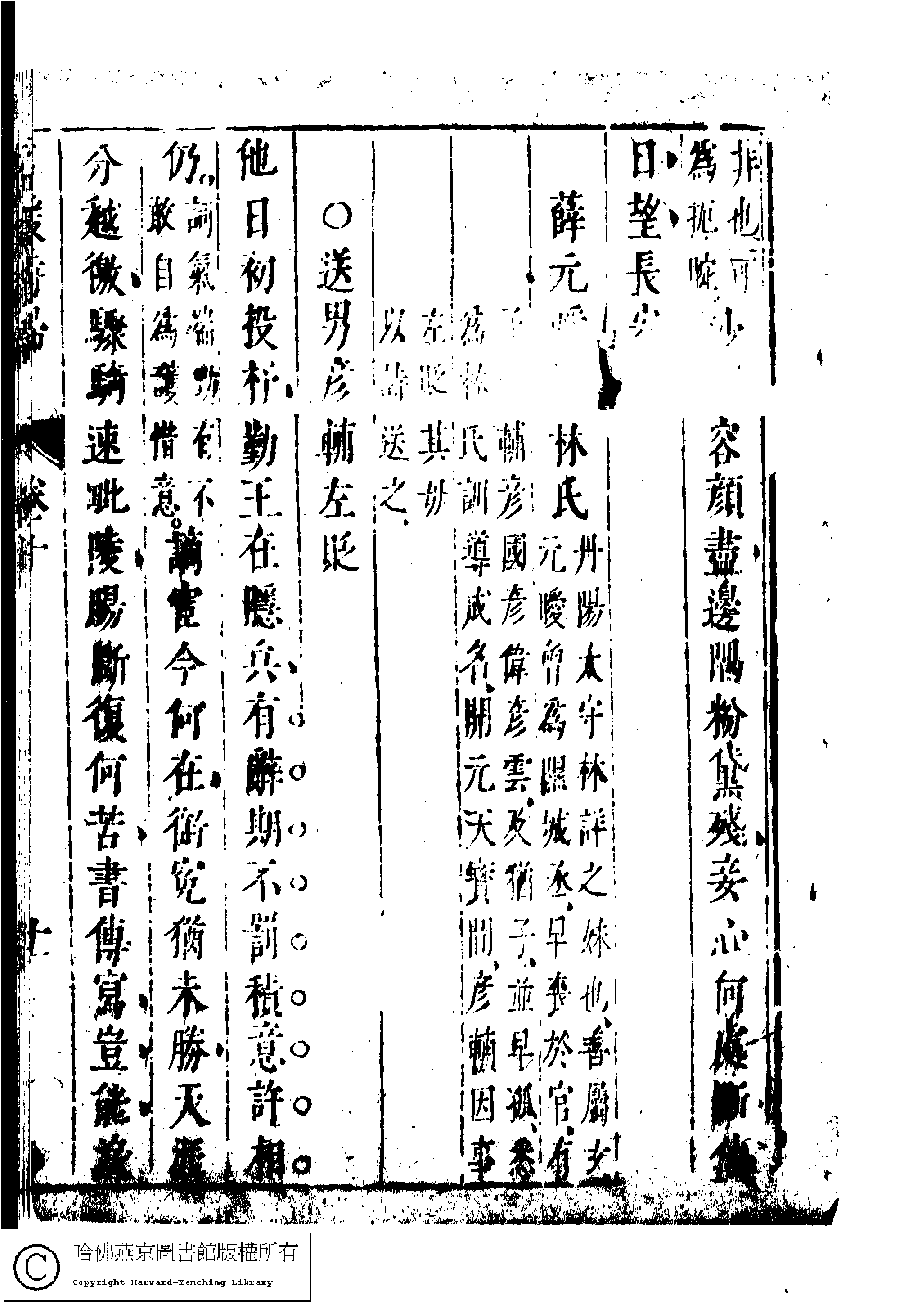 非也可
為扼腕　容顏盡邊隅粉黛殘妾心何處斷他
日望長安
薛元曖
林氏
丹陽太守林洋之妹也善屬文
元曖嘗為隰城丞早喪於官有
輔彥國彥偉彥雲及猶子並早孤悉
為林氏訓導成名開元天寶間彥輔因事
左貶其母
以詩送之
○送男彥輔左貶
他日初投杼勤王在隱兵有辭期不罰積意許相
仍
詞氣
有不
敢自為護惜意
謫宦今何在銜冤猶未勝天涯
分越徼驛騎速毗陵腸斷復何苦書傳寫豈能
卷十
十
哈佛燕京圖書館版權所有
Copyright Harvard-Yenching Library